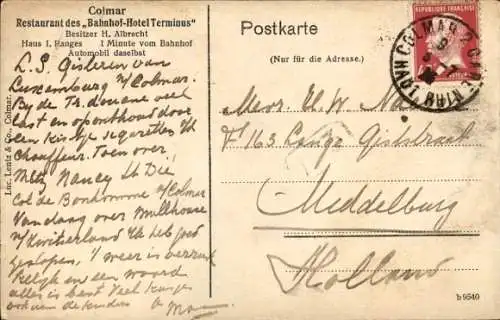 Colmar
Restaurant des „Bahnhof-Hotel Terminus"
Besitzer H. Albrecht
Haus I. Ranges 1 Minute vom Bahnhof
Automobil daselbst
L.S. Gisteren van
Luxemburg n/Colmar.
By de douane veel
last en oponthoud door
een kistje segaretten v/
chauffeur. Toen over
Metz Nancy St Dié
Col de Bonhomme n/Colmar
Vandaag over Mullhouse
n/Zwitserland Ik heb goed
geslapen, 't weer is
en een woord
alles is best Veel kusjes
ook aan de kinders
Luc. Lentz & Co., Colmar.
Postkarte
(Nur für die Adresse.)
REPUBLIQUE FRANÇAISE
COLMAR
HAUT RHIN
163 Lange Giststraat
Middelburg
Holland
b 9540